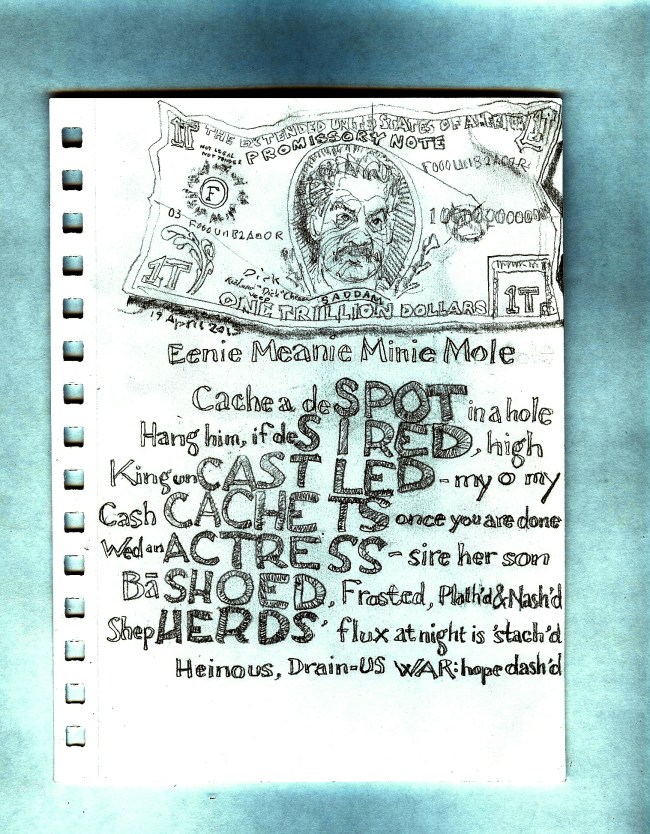 1T THE EXTENDED UNITED STATES OF AMERICA 1T
PROMISSORY NOTE
NOT LEGAL
NOT TENDER
F00D Un1B2A0O R
F
03 F00D Un1B2A0O R
Dick
SADDAM
1T ONE TRILLION DOLLARS 1T
19 April
Eenie Meanie Minie Mole
Cache a deSPOT in a hole
Hang him, if deSIRED, high
King unCASTLED - my o my
Cash CACHETS once you are done
Wed an ACTRESS - sire her son
BāSHOED, Frosted, Plath'd & Nash'd
ShepHERDS' flux at night is 'stach'd
Heinous, Drain-US WAR: hope dash'd